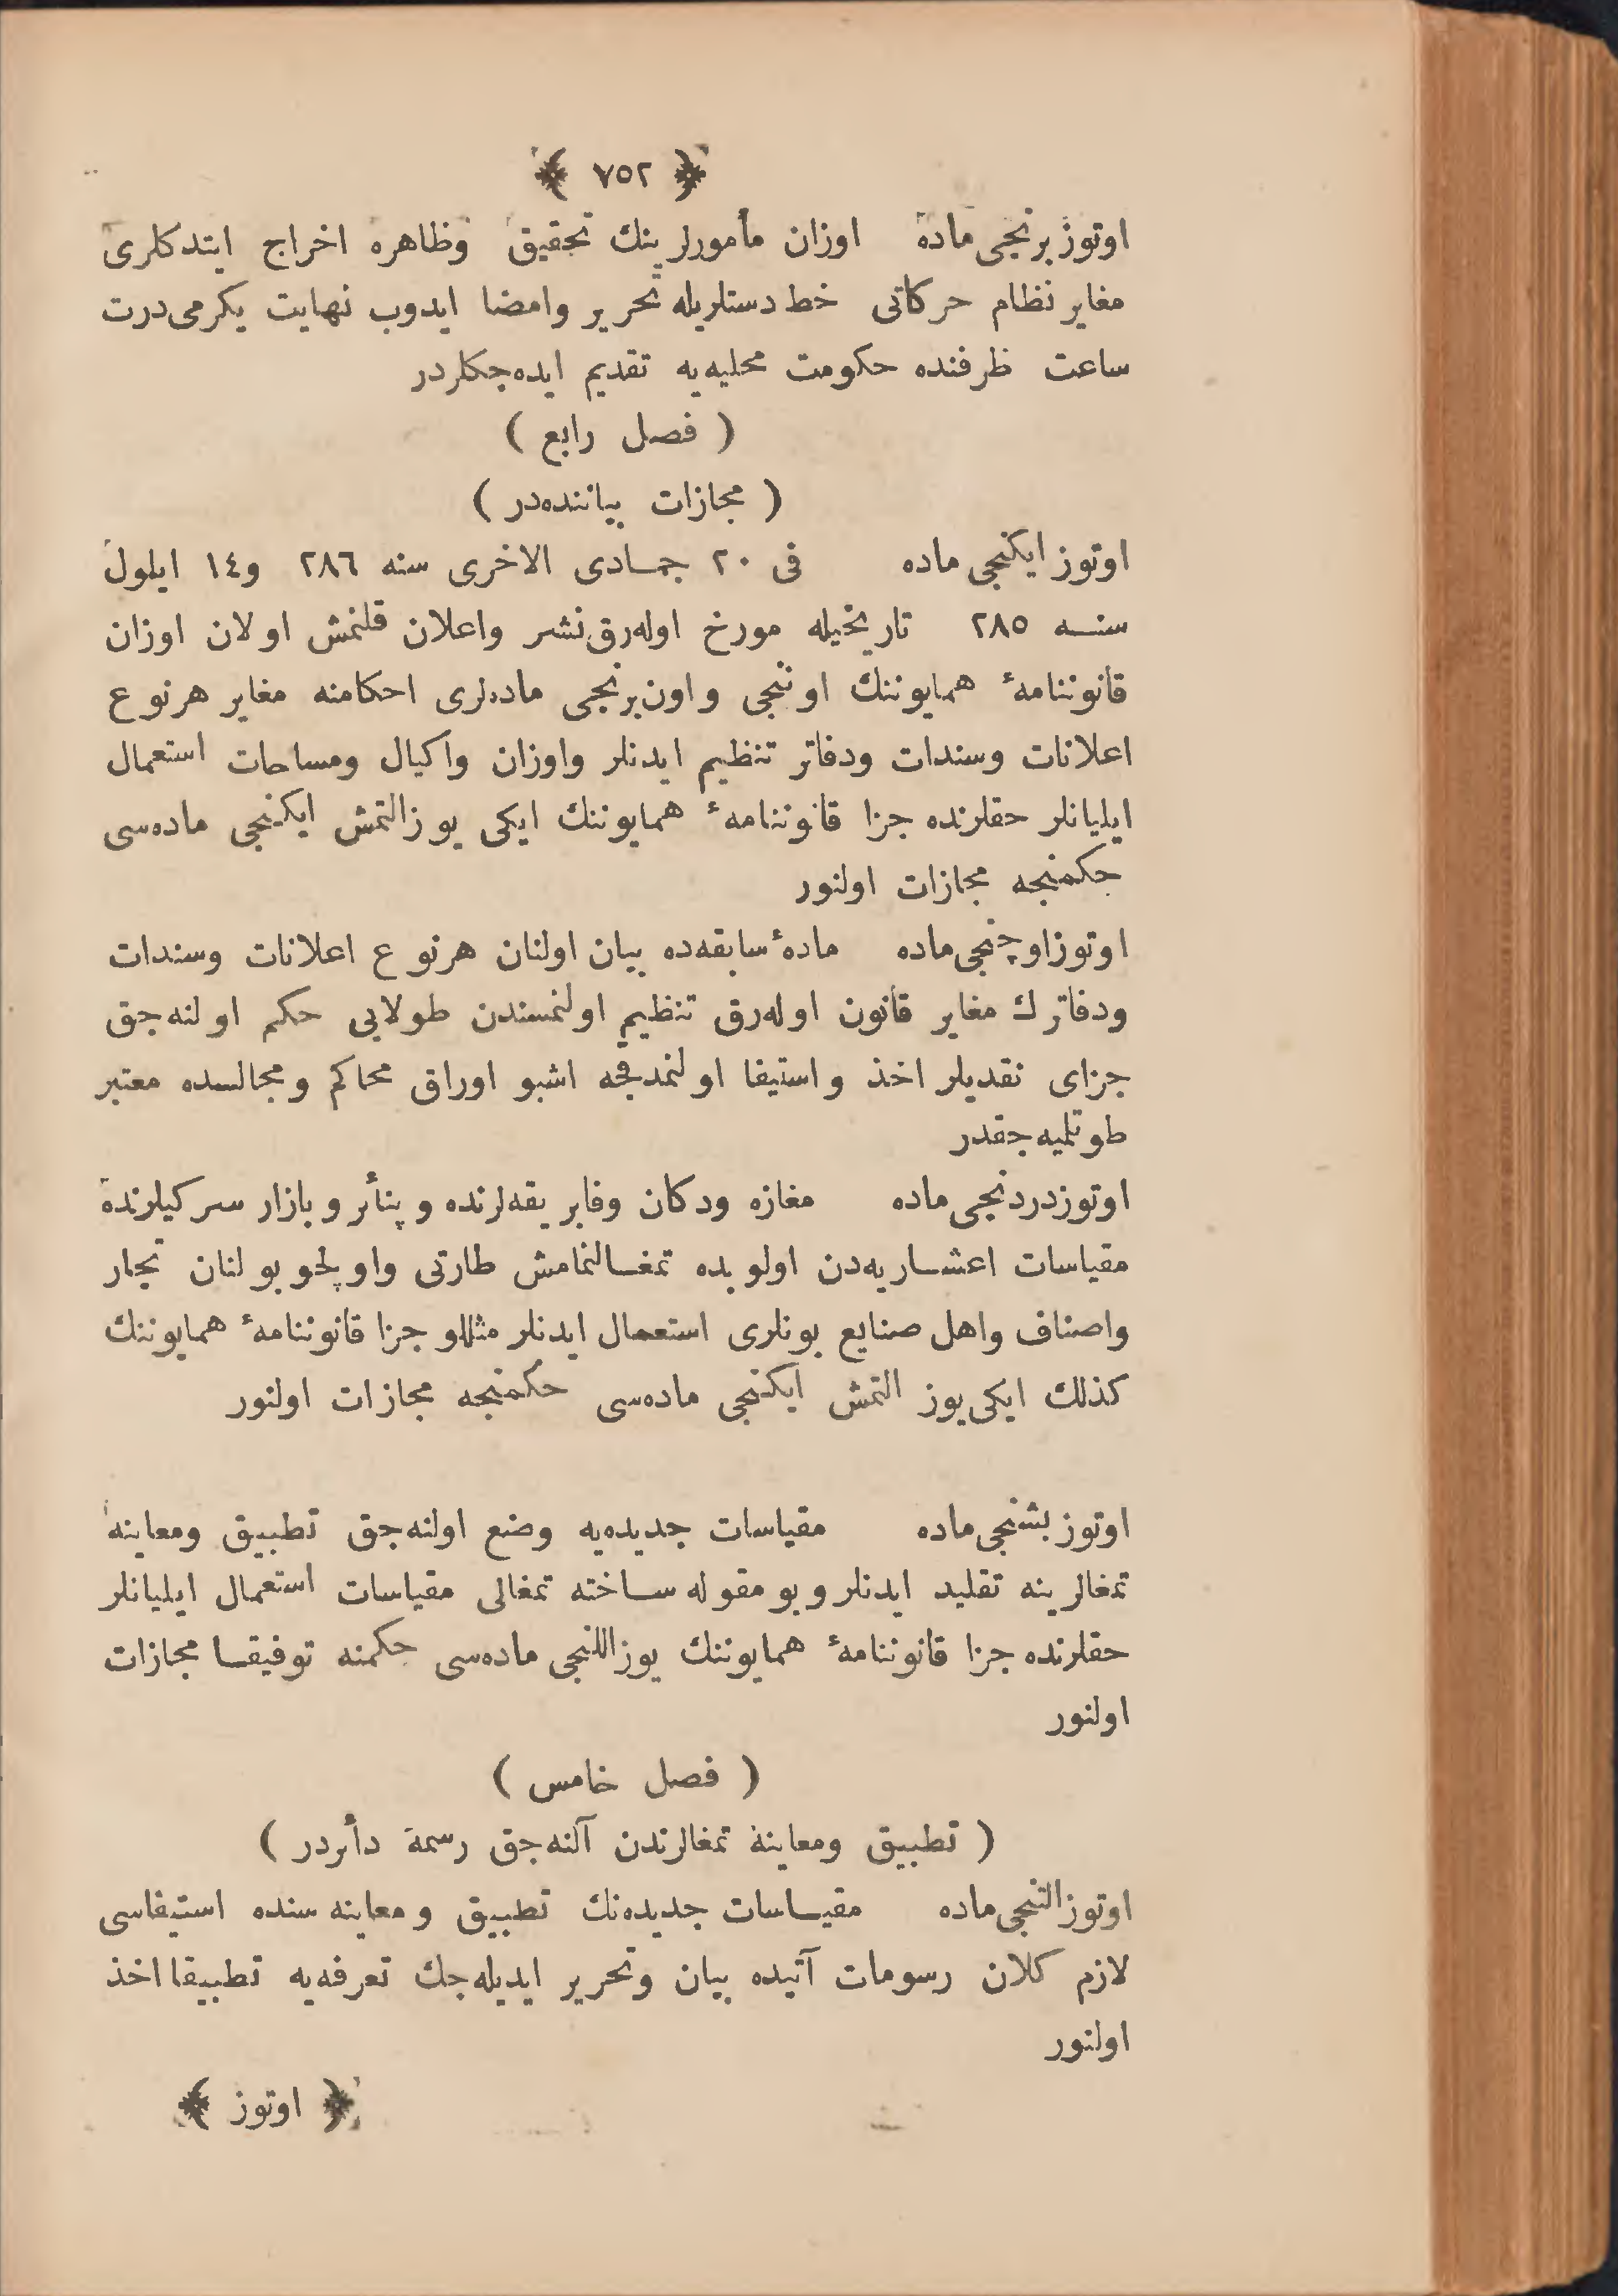 ﴿ ٧٥٢ ﴾
اوتوز برنجی ماده اوزان مأمورلرینك تحقیق وظاهره اخراج ایتدكلری
مغایر نظام حركاتی خط دستلریله تحریر وامضا ایدوب نهایت یكرمی درت
ساعت ظرفنده حكومت محلیه‌یه تقدیم ایده‌جكلردر
( فصل رابع )
( مجازات بیاننده‌در )
اوتوز ایكنجی ماده فی ٢٠ جمادی الاخری سنه ٢٨٦ و١٤ ایلول
سنه ٢٨٥ تاریخیله مورخ اوله‌رق نشر واعلان قلنمش اولان اوزان
قانوننامهٔ همایوننك اوننجی و اون برنجی ماده‌لری احكامنه مغایر هرنوع
اعلانات وسندات ودفاتر تنظیم ایدنلر واوزان واكیال ومساحات استعمال
ایلیانلر حقلرنده جزا قانوننامهٔ همایوننك ایكی یوزالتمش ایكنجی ماده‌سی
حكمنجه مجازات اولنور
اوتوزاوچنجی ماده مادهٔ سابقه‌ده بیان اولنان هرنوع اعلانات وسندات
ودفاترك مغایر قانون اوله‌رق تنظیم اولنمسندن طولایی حكم اولنه‌جق
جزای نقدیلر اخذ و استیفا اولنمدقجه اشبو اوراق محاكم ومجالسده معتبر
طوتلمیه‌جقدر
اوتوزدردنجی ماده مغازه ودكان وفابریقه‌لرنده و پنأیر و بازار سركیلرنده
مقیاسات اعشاریه‌دن اولوبده تمغالنمامش طارتی واوپلجو بولنان تجار
واصناف واهل صنایع بونلری استعمال ایدنلر مثللو جزا قانوننامهٔ همایوننك
كذلك ایكی یوز التمش ایكنجی ماده‌سی حكمنجه مجازات اولنور
اوتوز بشنجی ماده مقیاسات جدیده‌یه وضع اولنه‌جق تطبیق ومعاینه
تمغالرینه تقلید ایدنلر و بو مقوله ساخته تمغالی مقیاسات استعمال ایلیانلر
حقلرنده جزا قانوننامهٔ همایوننك یوزاللنجی ماده‌سی حكمنه توفیقا مجازات
اولنور
( فصل خامس )
( تطبیق ومعاینه تمغالرندن آلنه‌جق رسمه دأئردر )
اوتوزالتنجی ماده مقیاسات جدیده‌نك تطبیق و معاینه سنده استیفاسی
لازم كلان رسومات آتیده بیان وتحریر ایدیله‌جك تعرفه‌یه تطبیقا اخذ
اولنور
﴿ اوتوز ﴾